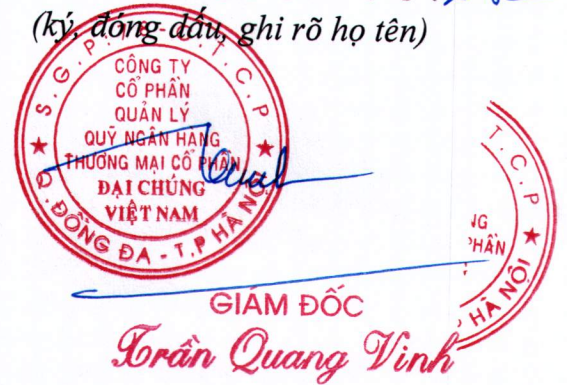 (ký, đóng dấu, ghi rõ họ tên)
S.G.P
T.C.P
CÔNG TY
CỔ PHẦN
QUẢN LÝ
QUỸ NGÂN HÀNG
THƯƠNG MẠI CỔ PHẦN
ĐẠI CHÚNG
VIỆT NAM
Q. ĐỐNG ĐA - T.P HÀ NỘI
T.C.P
NG
PHẦN
HÀ NỘI
GIÁM ĐỐC
Trần Quang Vinh